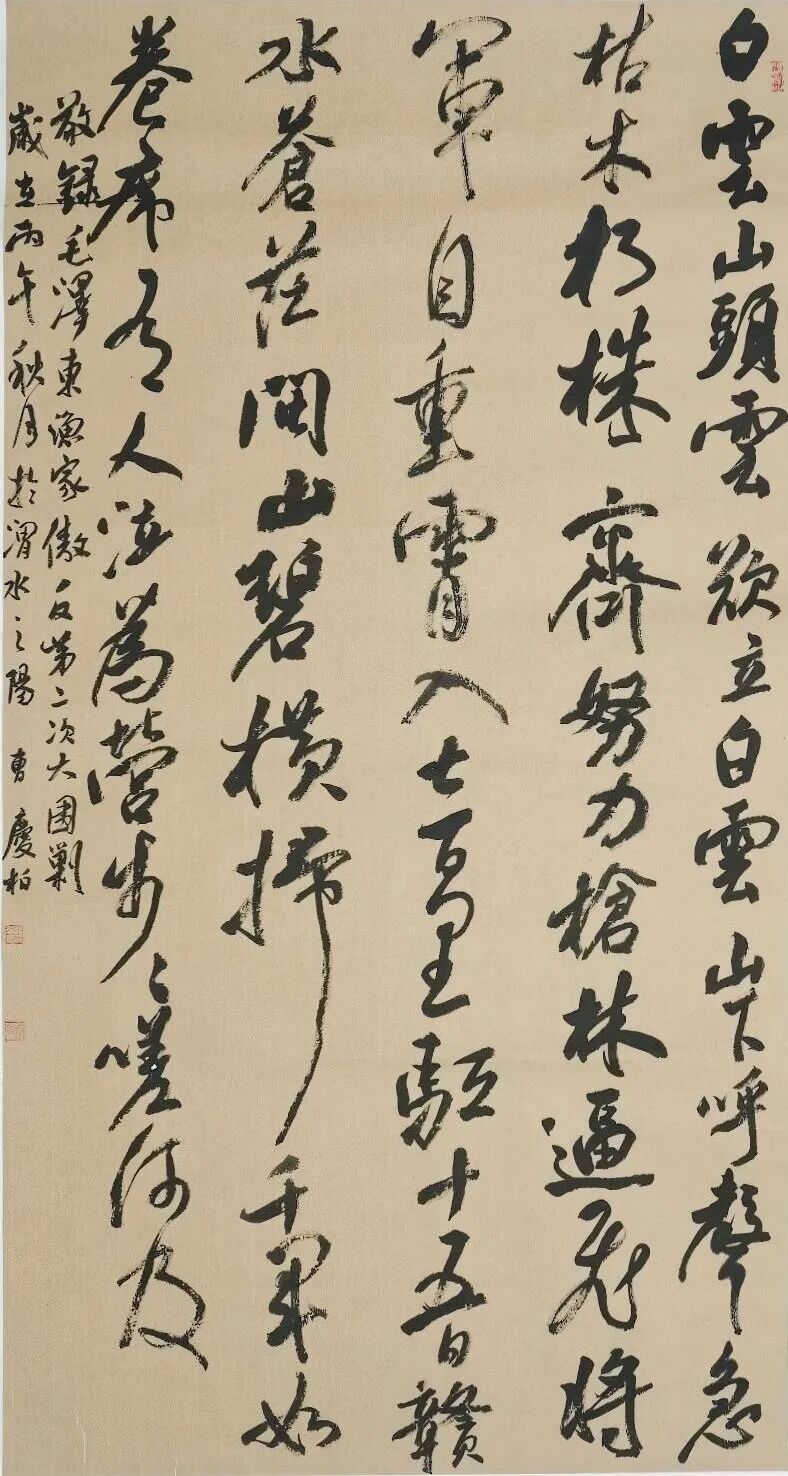 白雲山頭雲欲立白雲山下呼聲急
枯木朽株齊努力槍林逼飛將
軍自重霄入七百里驅十五日贛
水蒼茫閩山碧橫掃千軍如
卷席有人泣為營步〻嗟何及
敬錄毛澤東漁家傲反第二次大圍剿
歲在丙午秋月於渭水之陽 曹慶柏